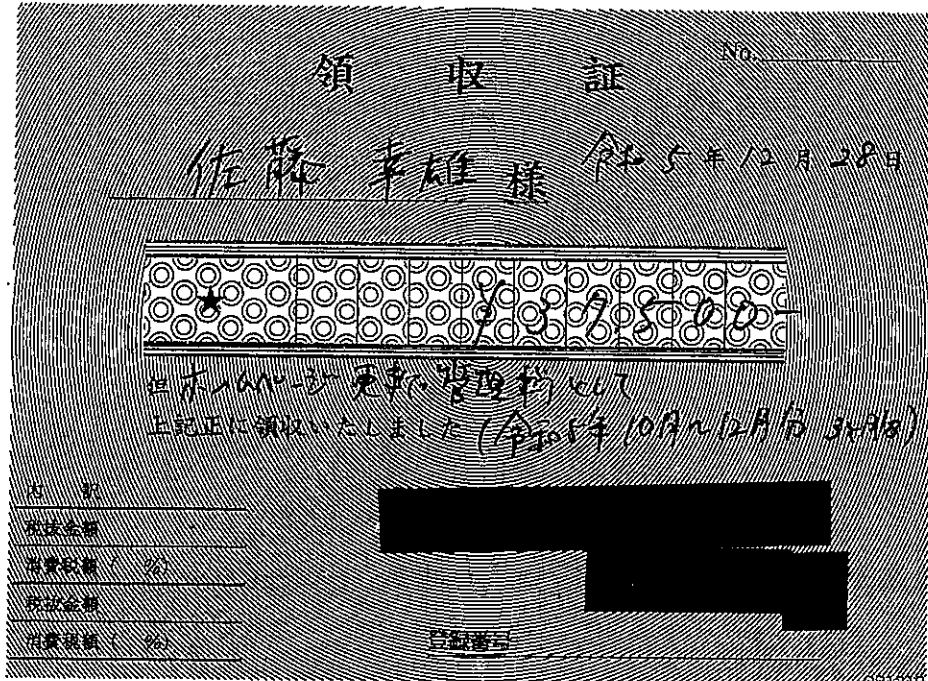 No.
領収証
佐藤 幸雄 様 令和5年12月28日
★ ¥37,500-
但 ホームページ更新・管理料として
上記正に領収いたしました (令和5年10月〜12月分 3ヶ月分)
内訳
税抜金額
消費税額( %)
税抜金額
消費税額( %)
登録番号